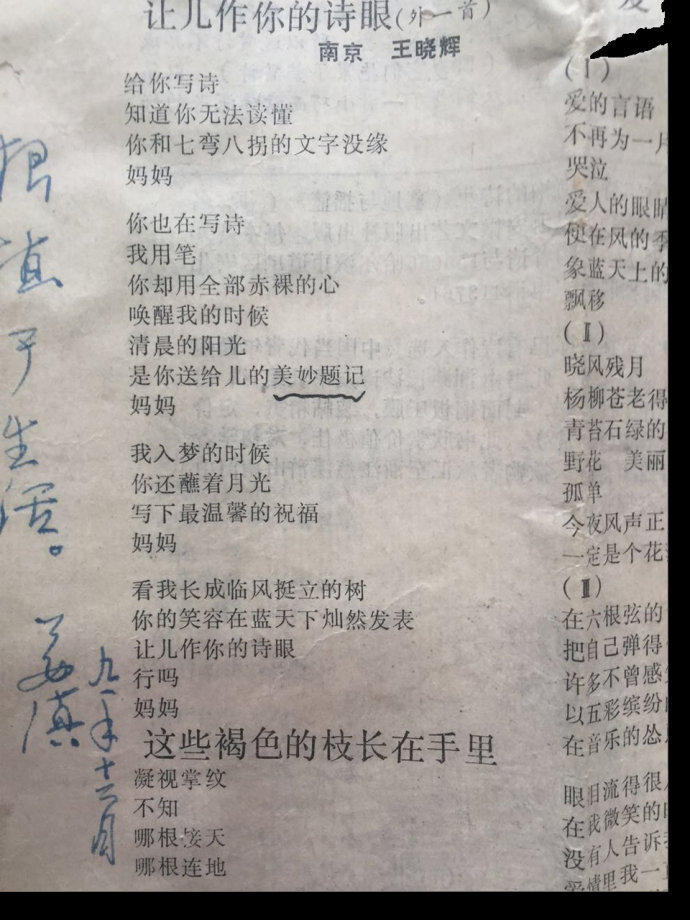 让儿作你的诗眼(外一首)
南京 王晓辉
给你写诗
知道你无法读懂
你和七弯八拐的文字没缘
妈妈
你也在写诗
我用笔
你却用全部赤裸的心
唤醒我的时候
清晨的阳光
是你送给儿的美妙题记
妈妈
我入梦的时候
你还蘸着月光
写下最温馨的祝福
妈妈
看我长成临风挺立的树
你的笑容在蓝天下灿然发表
让儿作你的诗眼
行吗
妈妈
这些褐色的枝长在手里
凝视掌纹
不知
哪根接天
哪根连地
(Ⅰ)
爱的言语
不再为一片
哭泣
爱人的眼睛
便在风的季
象蓝天上的
飘移
(Ⅱ)
晓风残月
杨柳苍老得
青苔石绿的
野花 美丽
孤单
今夜风声正
一定是个花
(Ⅲ)
在六根弦的
把自己弹得
许多不曾感
以五彩缤纷
在音乐的怂
眼泪流得很
在我微笑的时
没有人告诉我
爱情里我一直
根植于生活。
九一年十二月